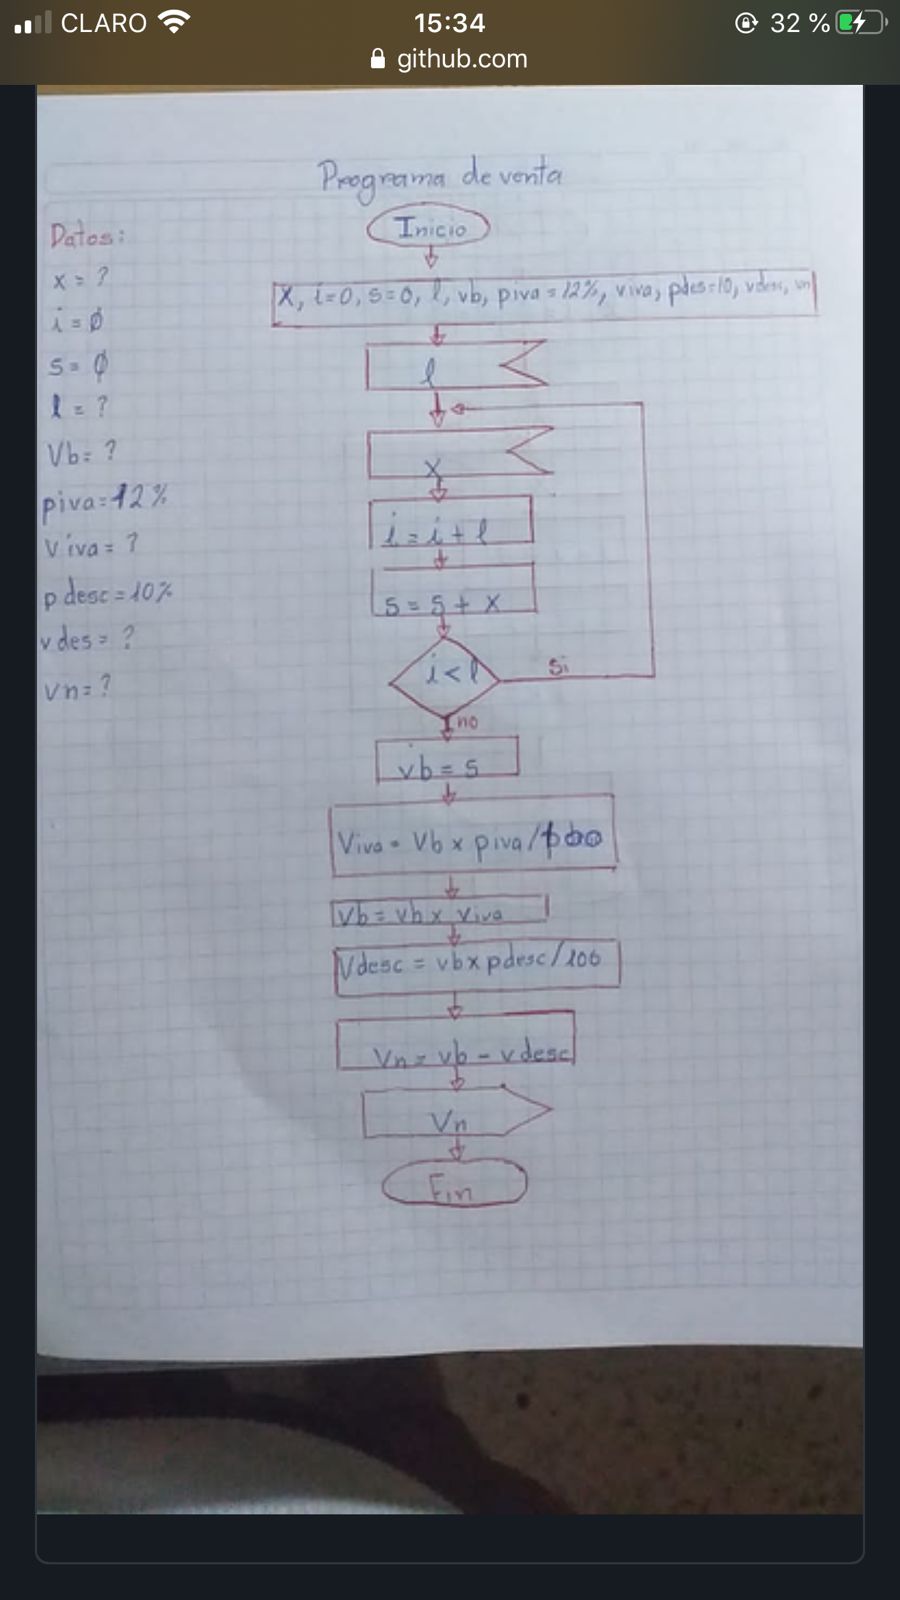 CLARO 15:34 32 %
github.com
Programa de venta
Datos:
x = ?
i = ∅
s = ∅
l = ?
Vb = ?
piva = 12%
viva = ?
pdesc = 10%
vdes = ?
vn = ?
Inicio
X, i=0, s=0, l, vb, piva = 12%, viva, pdes=10, vdesc, vn
l
x
i = i + l
s = s + x
i < l
si
no
vb = s
Viva = Vb x piva/100
Vb = vb x viva
Vdesc = vb x pdesc/100
Vn = vb - vdesc
Vn
Fin